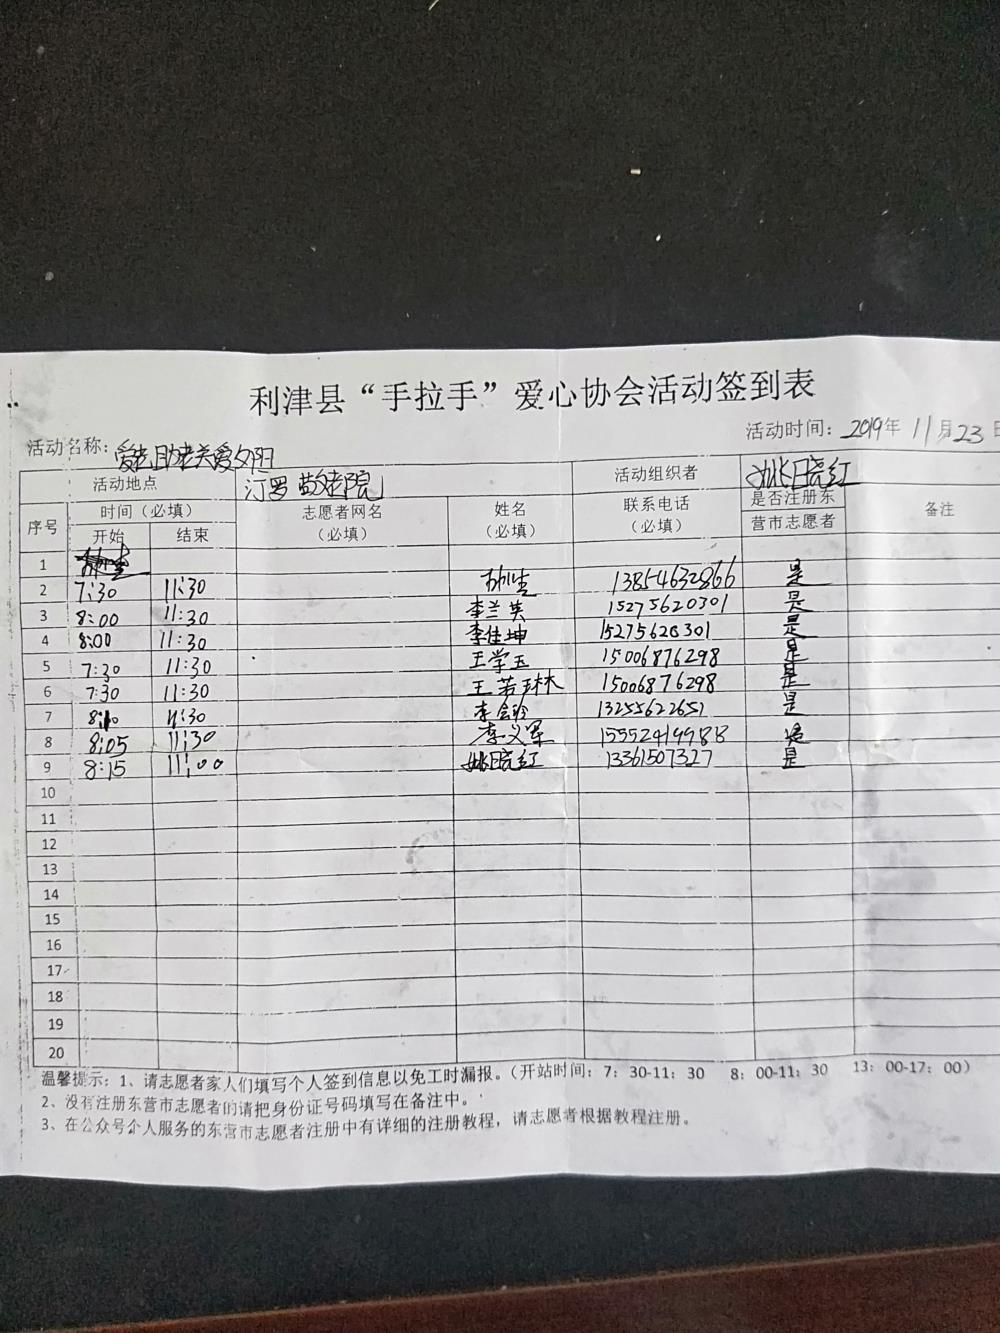 利津县“手拉手”爱心协会活动签到表
活动时间：2019年11月23日
活动名称：爱老助老关爱夕阳
活动地点 汀罗敬老院 活动组织者 姚晓红
序号 时间（必填） 志愿者网名（必填） 姓名（必填） 联系电话（必填） 是否注册东营市志愿者 备注
开始 结束
1
2 7:30 11:30 13854632866 是
3 8:00 11:30 李兰英 15275620301 是
4 8:00 11:30 李佳坤 15275620301 是
5 7:30 11:30 王学玉 15006876298 是
6 7:30 11:30 王若琳 15006876298 是
7 11:30 李会玲 13255622651 是
8 8:05 11:30 李义军 15552419988 是
9 8:15 11:00 姚晓红 13361507327 是
10
11
12
13
14
15
16
17
18
19
20
温馨提示：1、请志愿者家人们填写个人签到信息以免工时漏报。（开站时间：7：30-11：30 8：00-11：30 13：00-17：00）
2、没有注册东营市志愿者的请把身份证号码填写在备注中。
3、在公众号个人服务的东营市志愿者注册中有详细的注册教程，请志愿者根据教程注册。